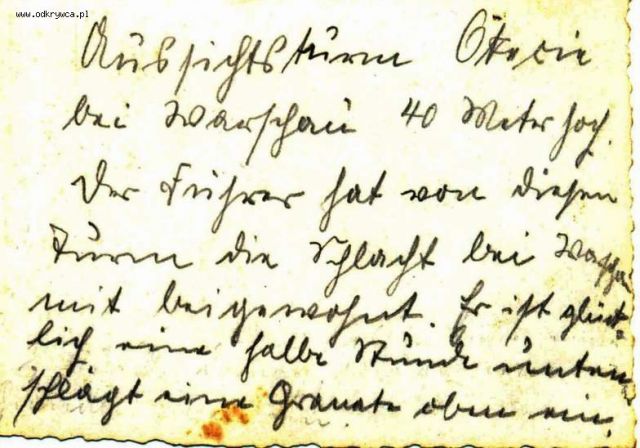 www.odkrywca.pl
Aussichtsturm Okecie
bei Warschau 40 Meter hoch.
Der Führer hat von diesen
Turm die Schlacht bei Warschau
mit beigewohnt. Er ist glück-
lich eine halbe Stunde unten
schlägt eine Granate oben ein.